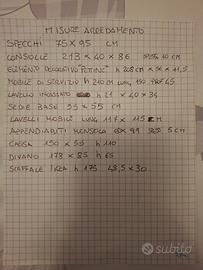 MISURE ARREDAMENTO
SPECCHI 75 X 95 CM
CONSOLLE 213 X 40 X 86
ELEMENTO DECORATIVO h 208 cm X 56 X 11,5
MOBILE DI SERVIZIO h 210 LUNG 150 PROF 45
LAVELLO h 21 X 40 X 34
SEDIE BASE 55 X 55 CM
LAVELLI MOBILE LUNG 117 X 115 CM
APPENDIABITI MENSOLA X 99 5 CM
CASSA 150 X 55 h 110
DIVANO 178 X 85 h 65
SCAFFALE IKEA h 175 43,5 X 30
subito